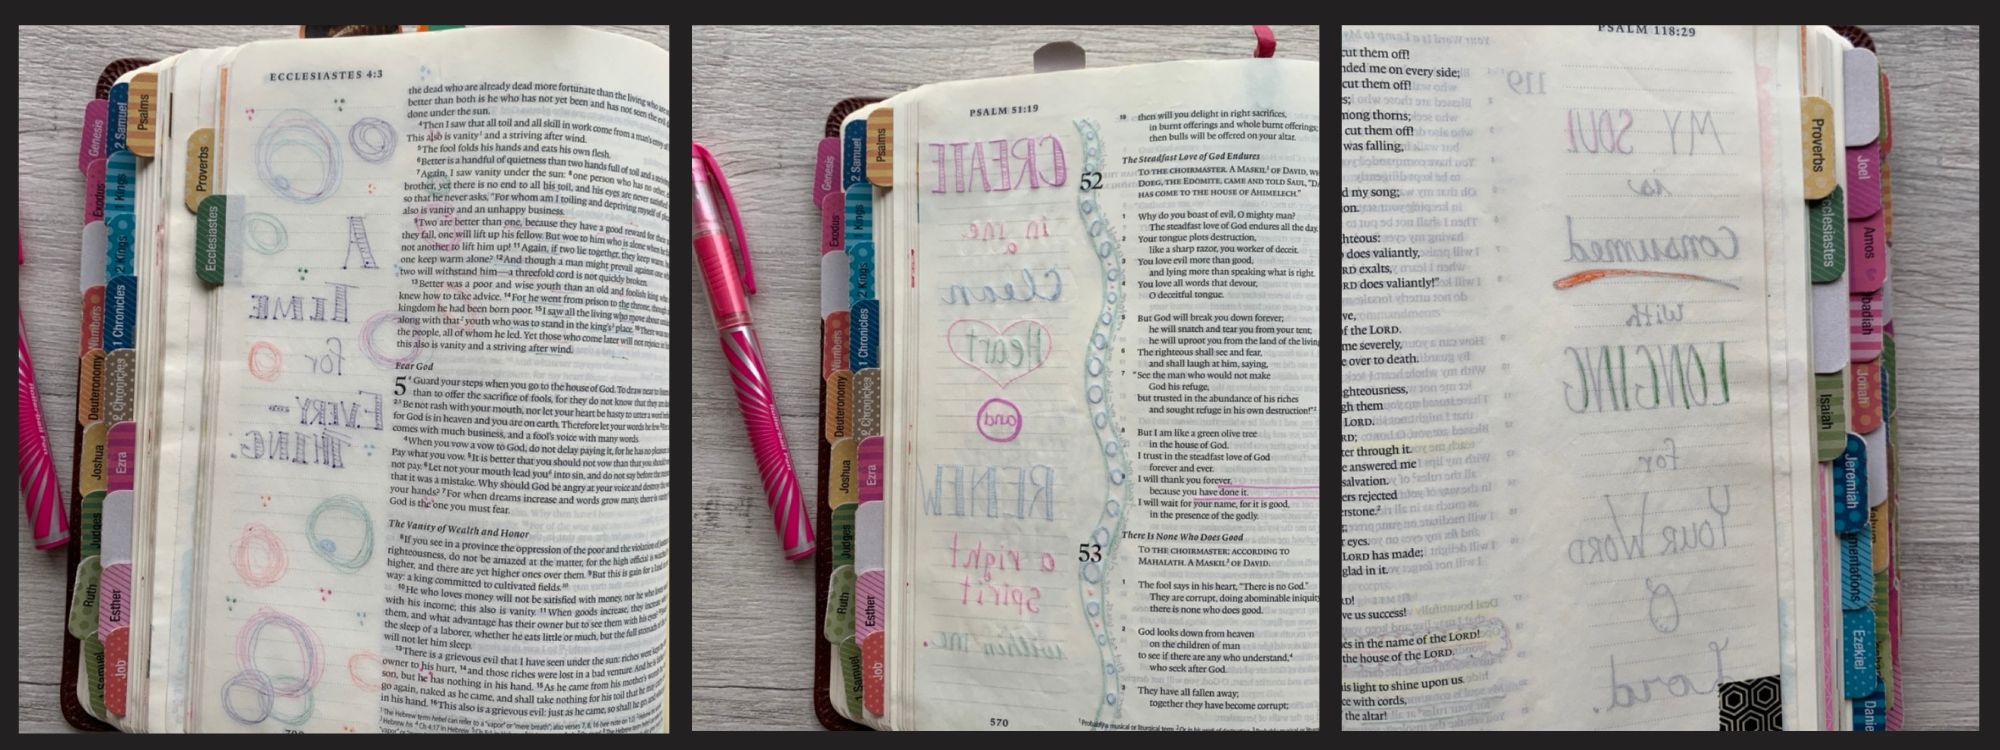 Genesis
Exodus
Numbers
Deuteronomy
Joshua
Judges
Ruth
1 Samuel
2 Samuel
1 Kings
2 Kings
1 Chronicles
2 Chronicles
Ezra
Esther
Job
Psalms
Proverbs
Ecclesiastes
ECCLESIASTES 4:3
A
TIME
for
EVERY
THING.
the dead who are already dead more fortunate than the living who are
better than both is he who has not yet been and has not seen the evil
done under the sun.
4 Then I saw that all toil and all skill in work come from a man's envy of
This also is vanity and a striving after wind.
5 The fool folds his hands and eats his own flesh.
6 Better is a handful of quietness than two hands full of toil and a striving
7 Again, I saw vanity under the sun: 8 one person who has no other,
brother, yet there is no end to all his toil, and his eyes are never satisfied
so that he never asks, "For whom am I toiling and depriving myself of
also is vanity and an unhappy business.
9 Two are better than one, because they have a good reward for their
they fall, one will lift up his fellow. But woe to him who is alone when he
not another to lift him up! 11 Again, if two lie together, they keep warm,
one keep warm alone? 12 And though a man might prevail against one who
two will withstand him—a threefold cord is not quickly broken.
13 Better was a poor and wise youth than an old and foolish king who
knew how to take advice. 14 For he went from prison to the throne, though
kingdom he had been born poor. 15 I saw all the living who move about under
along with that youth who was to stand in the king's place. 16 There was no
the people, all of whom he led. Yet those who come later will not rejoice in
this also is vanity and a striving after wind.
Fear God
5 Guard your steps when you go to the house of God. To draw near to listen
than to offer the sacrifice of fools, for they do not know that they are
2 Be not rash with your mouth, nor let your heart be hasty to utter a word
for God is in heaven and you are on earth. Therefore let your words be few.
comes with much business, and a fool's voice with many words.
4 When you vow a vow to God, do not delay paying it, for he has no pleasure
Pay what you vow. 5 It is better that you should not vow than that you should
not pay. 6 Let not your mouth lead you into sin, and do not say before the
that it was a mistake. Why should God be angry at your voice and destroy the
your hands? 7 For when dreams increase and words grow many, there is
God is the one you must fear.
The Vanity of Wealth and Honor
8 If you see in a province the oppression of the poor and the violation of
righteousness, do not be amazed at the matter, for the high official is
higher, and there are yet higher ones over them. 9 But this is gain for a land
way: a king committed to cultivated fields.
10 He who loves money will not be satisfied with money, nor he who loves
with his income; this also is vanity. 11 When goods increase, they increase
them, and what advantage has their owner but to see them with his eyes?
the sleep of a laborer, whether he eats little or much, but the full stomach
will not let him sleep.
13 There is a grievous evil that I have seen under the sun: riches were kept
owner to his hurt, 14 and those riches were lost in a bad venture. And he is
son, but he has nothing in his hand. 15 As he came from his mother's womb
go again, naked as he came, and shall take nothing for his toil that he may
in his hand. 16 This also is a grievous evil: just as he came, so shall he go,
Genesis
Exodus
Numbers
Deuteronomy
Joshua
Judges
Ruth
1 Samuel
2 Samuel
1 Kings
2 Kings
1 Chronicles
2 Chronicles
Ezra
Esther
Job
Psalms
PSALM 51:19
CREATE
in me
a
Clean
Heart
and
RENEW
a right
spirit
within me.
19 then will you delight in right sacrifices,
in burnt offerings and whole burnt offerings;
then bulls will be offered on your altar.
The Steadfast Love of God Endures
52 TO THE CHOIRMASTER. A MASKIL OF DAVID, WHEN
DOEG, THE EDOMITE, CAME AND TOLD SAUL, "DAVID
HAS COME TO THE HOUSE OF AHIMELECH."
1 Why do you boast of evil, O mighty man?
The steadfast love of God endures all the day.
2 Your tongue plots destruction,
like a sharp razor, you worker of deceit.
3 You love evil more than good,
and lying more than speaking what is right.
4 You love all words that devour,
O deceitful tongue.
5 But God will break you down forever;
he will snatch and tear you from your tent;
he will uproot you from the land of the living.
6 The righteous shall see and fear,
and shall laugh at him, saying,
7 "See the man who would not make
God his refuge,
but trusted in the abundance of his riches
and sought refuge in his own destruction!"
8 But I am like a green olive tree
in the house of God.
I trust in the steadfast love of God
forever and ever.
9 I will thank you forever,
because you have done it.
I will wait for your name, for it is good,
in the presence of the godly.
There Is None Who Does Good
53 TO THE CHOIRMASTER: ACCORDING TO
MAHALATH. A MASKIL OF DAVID.
1 The fool says in his heart, "There is no God."
They are corrupt, doing abominable iniquity;
there is none who does good.
2 God looks down from heaven
on the children of man
to see if there are any who understand,
who seek after God.
3 They have all fallen away;
together they have become corrupt;
570
PSALM 118:29
cut them off!
nded me on every side;
cut them off!
mong thorns;
cut them off!
was falling,
d my song;
on.
hteous:
does valiantly,
RD exalts,
RD does valiantly!"
ve,
f the LORD.
me severely,
e over to death.
ghteousness,
gh them
LORD.
RD;
ter through it.
e answered me
salvation.
ers rejected
erstone.
r eyes.
LORD has made;
glad in it.
RD!
ve us success!
es in the name of the LORD!
the house of the LORD.
is light to shine upon us.
ce with cords,
the altar!
119
MY SOUL
is
Consumed
with
LONGING
for
YOUR WORD
O
Lord.
Proverbs
Ecclesiastes
Isaiah
Jeremiah
Lamentations
Ezekiel
Daniel
Joel
Amos
Obadiah
Jonah